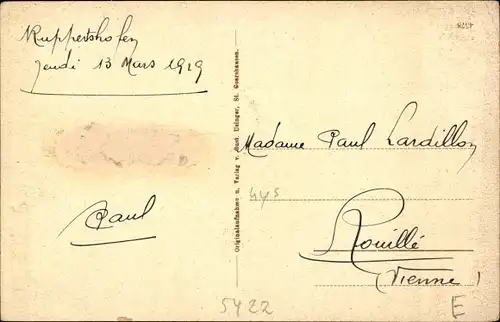 Ruppertshofen
Jeudi 13 Mars 1919
Paul
Originalaufnahme u. Verlag v. Aust Usinger, St. Goarshausen.
Madame Paul Lardillon
Rouillé
(Vienne)
5422
E